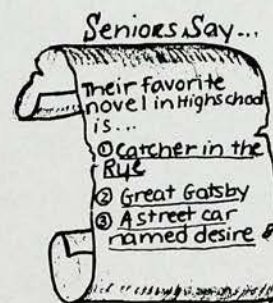 Seniors Say...
Their favorite
novel in Highschool
is...
① Catcher in the
Rye
② Great Gatsby
③ A street car
named desire